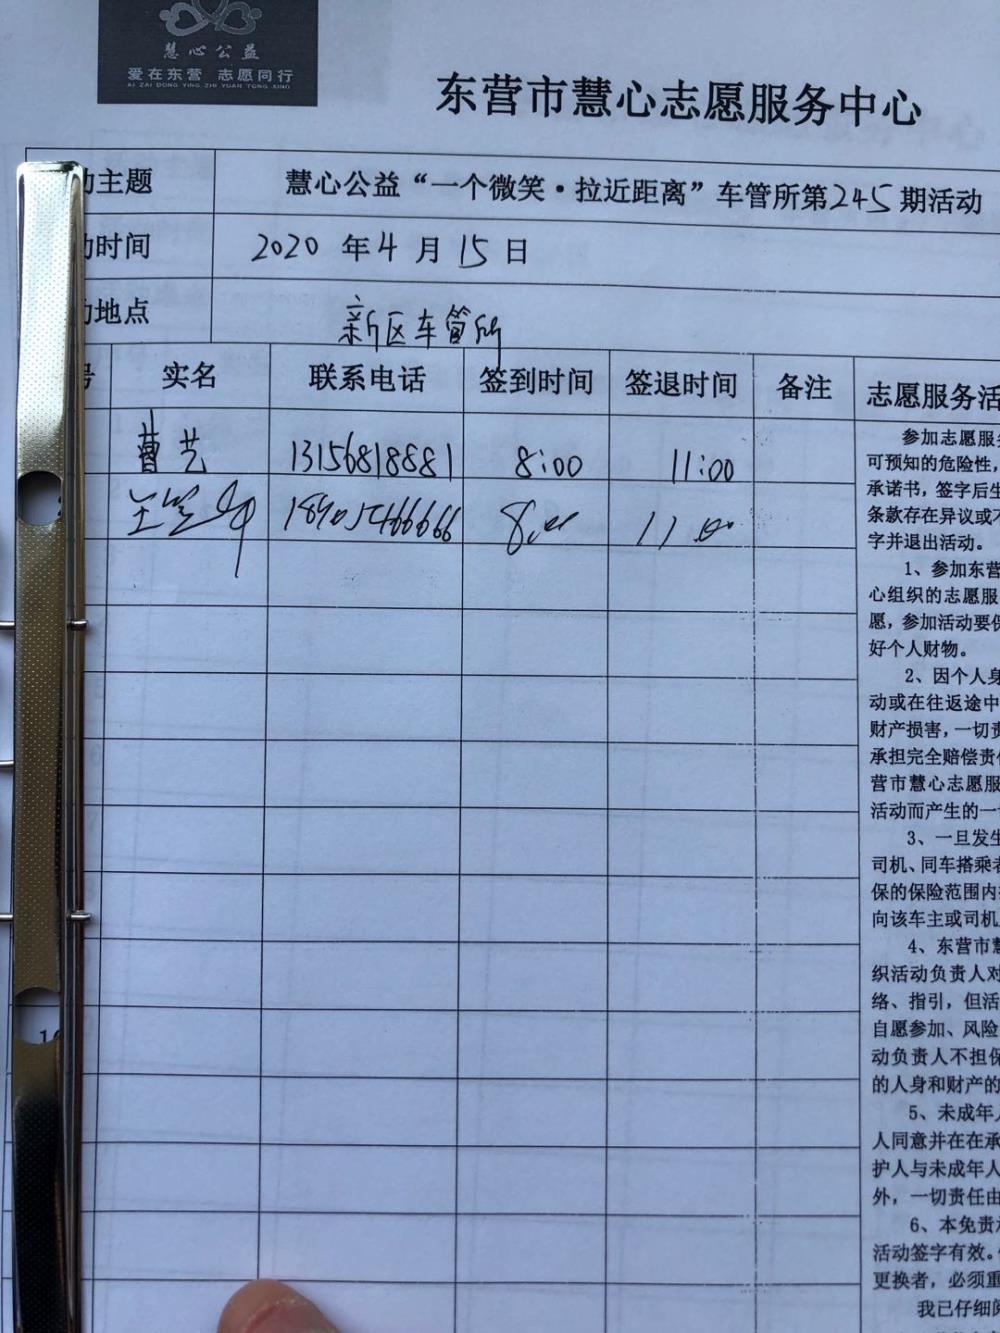 慧心公益
爱在东营 志愿同行
AI ZAI DONG YING ZHI YUAN TONG XING
东营市慧心志愿服务中心
动主题 慧心公益“一个微笑·拉近距离”车管所第245期活动
动时间 2020 年 4 月 15 日
动地点 新区车管所
号 实名 联系电话 签到时间 签退时间 备注 志愿服务活
曹艺 13156818881 8:00 11:00
8:00 11:00
参加志愿服务
可预知的危险性，
承诺书，签字后生
条款存在异议或不
字并退出活动。
1、参加东营
心组织的志愿服
愿，参加活动要保
好个人财物。
2、因个人身
动或在往返途中
财产损害，一切责
承担完全赔偿责任
营市慧心志愿服
活动而产生的一
3、一旦发生
司机、同车搭乘者
保的保险范围内
向该车主或司机
4、东营市慧
织活动负责人对
络、指引，但活
自愿参加、风险
动负责人不担保
的人身和财产的
5、未成年人
人同意并在在承
护人与未成年人
外，一切责任由
6、本免责承
活动签字有效。
更换者，必须重
我已仔细阅